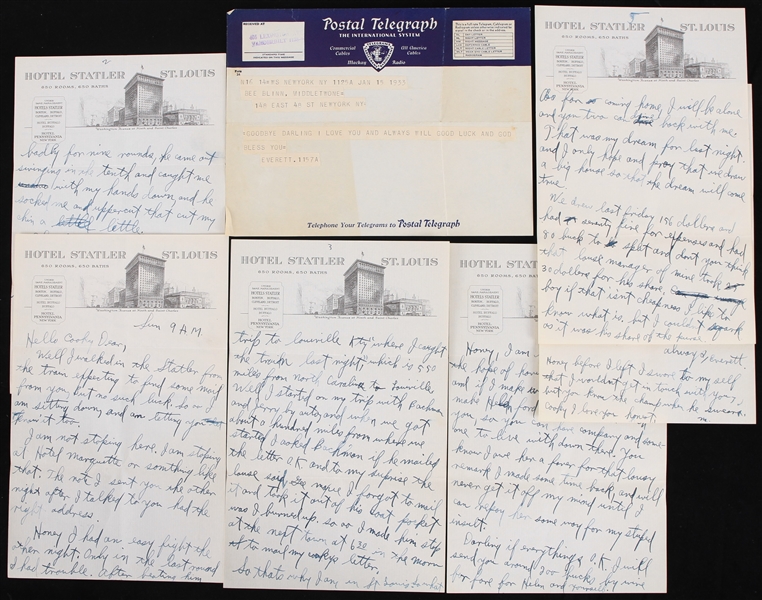 2
HOTEL STATLER
ST. LOUIS
650 ROOMS, 650 BATHS
badly for nine rounds, he came out
swinging in the tenth and caught me
with my hands down, and he
socked me and uppercut that cut my
chin a little
Postal Telegraph
THE INTERNATIONAL SYSTEM
Commercial Cables
All America Cables
Mackay Radio
RECEIVED AT
NEWYORK NY 1105A JAN 15 1937
148 EAST 48 ST NEWYORK NY
GOODBYE DARLING I LOVE YOU AND ALWAYS WILL GOOD LUCK AND GOD
BLESS YOU
EVERETT. 1157A
Telephone Your Telegrams to Postal Telegraph
HOTEL STATLER
ST. LOUIS
650 ROOMS, 650 BATHS
HOTELS STATLER
HOTEL PENNSYLVANIA NEW YORK
As for coming home, I will be alone
and you two back with me.
That was my dream for last night.
and I only hope and pray that we draw
a big house so that the dream will come
true.
We drew last friday 156 dollars and
had seventy five for expenses and had
80 buck to spit and don't you think
that louse manager of mine took
30 dollars for his share.
boy if that isn't cheapness I like to
know what is, but I couldn't speak
as it was his share of the purse.
always, Everett.
Honey before I left I swore to my self
that I wouldn't get in touch with you,
but you know the champ when he swears.
Cooky I love you honest.
HOTEL STATLER
ST. LOUIS
650 ROOMS, 650 BATHS
HOTELS STATLER
HOTEL PENNSYLVANIA NEW YORK
Sun 9 AM
Hello Cooky Dear,
Well I walked in the Statler from
the train expecting to find some mail
from you but no such luck. So I
am sitting down and telling you
it too.
I am not stoping here. I am stoping
at Hotel Marquette or somthing like
that. The note I sent you the other
night after I talked to you had the
right address
Honey I had an easy fight the
other night. Only in the last round
I had trouble. After beating him
3
HOTEL STATLER
ST. LOUIS
650 ROOMS, 650 BATHS
Washington Avenue at Ninth and Saint Charles
HOTELS STATLER
HOTEL PENNSYLVANIA NEW YORK
trip to Louiville Kty where I caught
the train last night, which is 550
miles from North Carolina to Louiville
Well I started on my trip with Bachman
and Gorry by auto, and when we got
about a hundred miles from where we
started I asked Bachman if he mailed
the letter OK and to my suprise the
louse said, Gee more I forgot to mail
it and took it out of his coat pocket
was I burned up. so I made him stop
at the next town at 630 in the morn
to mail my cookys letter.
So thats why I am in St. Louis
HOTEL STATLER
650 ROOMS, 650 BATHS
Honey, I am
the hope of
and if I make
make Helen
you, so you can have company and some-
one to live with down there. You
know I owe her a favor for that lousy
remark I made some time back, and will
never get it off my mind until I
can repay her some way for my stupid
insult.
Darling if everything is O.K. I will
send you around 200 bucks by wire
for fare for Helen and yourself.